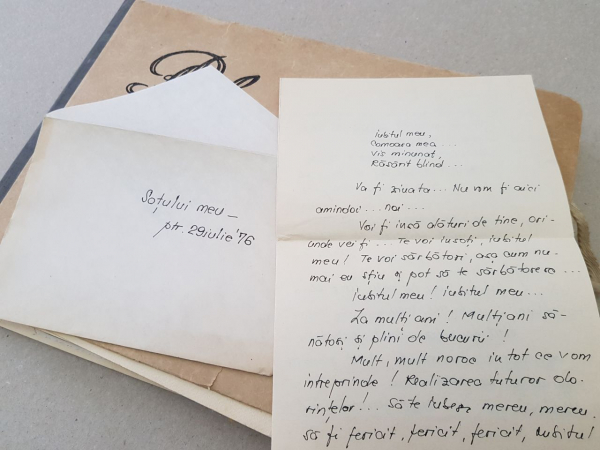 Soțului meu –
ptr. 29 iulie '76
Iubitul meu,
Comoara mea...
Vis minunat,
Răsărit blînd...
Va fi ziua ta... Nu vom fi aici
amîndoi... noi...
Voi fi însă alături de tine, ori-
unde vei fi... Te voi însoți, iubitul
meu! Te voi sărbători, așa cum nu-
mai eu știu și pot să te sărbătoresc...
Iubitul meu! Iubitul meu...
La mulți ani! Mulți ani să-
nătoși și plini de bucurii!
Mult, mult noroc în tot ce vom
întreprinde! Realizarea tuturor do-
rințelor!... Să te iubesc mereu, mereu.
Să fi fericit, fericit, fericit, iubitul